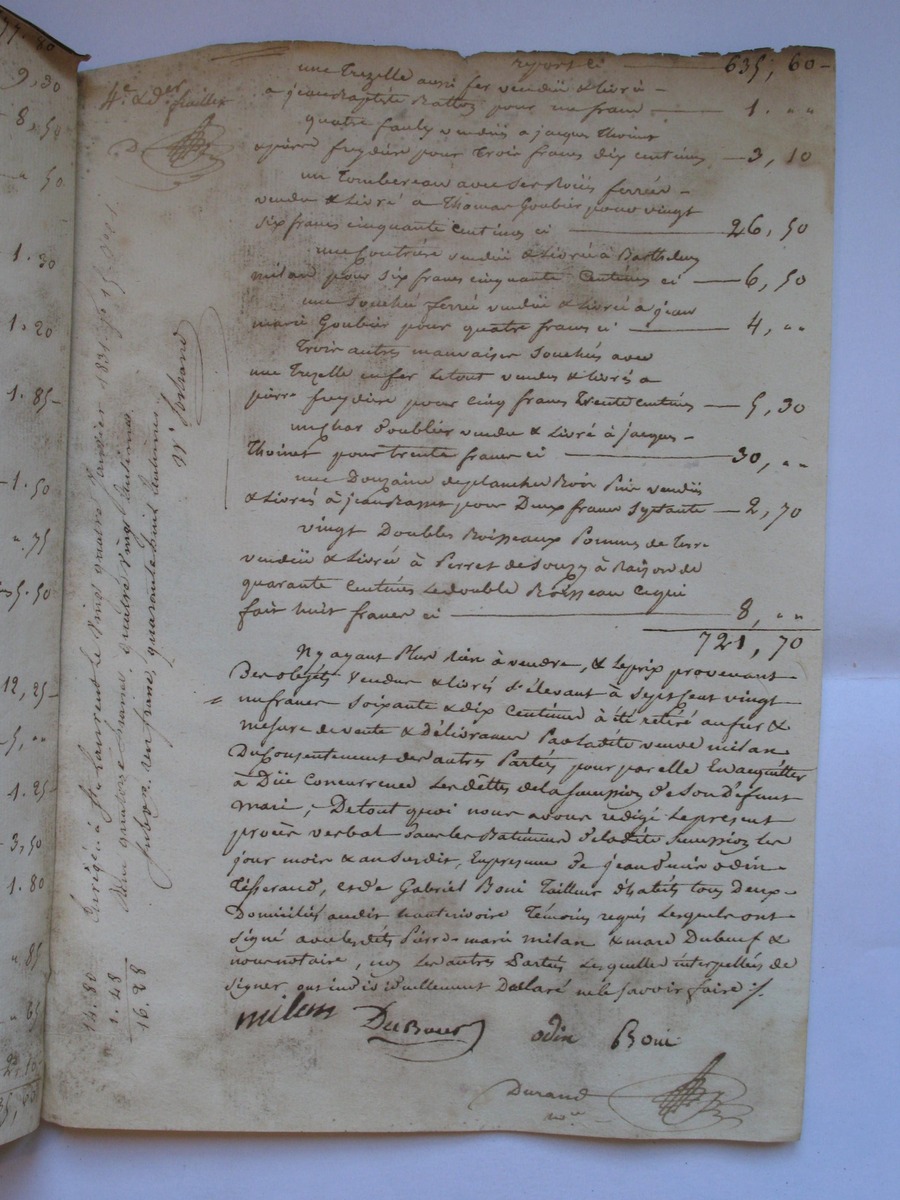 report ci 635, 60
une Trezelle aussi fer vendüe & livrée
a jean Baptiste Rattos pour un franc 1. " "
quatre faulx vendües a jacques Thoinet
& pierre freydière pour Trois francs dix centimes 3, 10
un Tombereau avec ses Roües ferrées
vendu & Livré a Thomas Goubier pour vingt
six francs cinquante centimes ci 26, 50
une vendüe & Livrée à Barthelemy
milan pour six francs cinquante Centimes ci 6, 50
une ferrée vendüe & Livrée a jean
marie Goubier pour quatre francs ci 4, " "
Trois autres mauvaises avec
une Trezelle en fer le tout vendus & livrés a
pierre freydière pour cinq francs Trente Centimes 5, 30
un char vendu & Livré à jacques
Thoinet pour trente francs ci 30, " "
une Douzaine de planches Bois Pin vendües
& Livrées à jean pour Deux francs Septante 2, 70
vingt Doubles Boisseaux Pommes de Terre
vendüe & Livrée à Perret de Souzy à Raison de
quarante Centimes le double Boisseau ce qui
fait huit francs ci 8, " "
721, 70
N'y ayant Plus Rien à vendre, & le prix provenant
Des objets Vendus & livrés s'élevant à Sept Cent vingt
un francs soixante & dix Centimes à été retiré au fur &
mesure de vente & délivrance Par ladite veuve milan
Du Consentement des autres Parties pour par elle En acquitter
à Düe Concurrence Les dettes de la Succession de Son Défunt
mari; De tout quoi nous avons rédigé le présent
procès verbal dans les Batiments de ladite Succession les
jour mois & an Susdit, En présence de jean Denis odin
Tisserand, et de Gabriel Boni Tailleur d'habits tous Deux
Domiciliés audit hauterivoire Témoins requis Lesquels ont
signé avec lesdits Pierre marie milan & marc Dubœuf &
nous notaire, non Les autres Parties Lesquelles interpellées de
signer ont individuellement Déclaré ne le Savoir faire ./.
milan
DuBoeuf
odin
Boni
Durand
nre
4e & der feuillet
D
Enrgé. à St Laurent le vingt quatre Janvier 1831
quatre vingt centimes
subv.on un franc, quarante huit centimes.
14. 80
1. 48
16. 28
77. 80
9, 30
8, 50
" 50
1. 30
1. 20
1. 85
1. 50
". 75
5. 50
12, 25
5, " "
1. 25
3, 50
1. 80
". 85
" 65